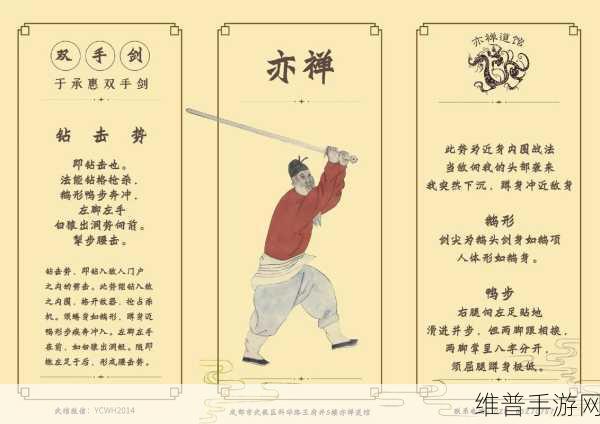 双手剑
于承惠双手剑
钻击势
即钻击也。
法能钻格抢杀，
鹅形鸭步奔冲，
左脚左手
白猿出洞势向前。
掣步腰击。
钻击势，即钻入敌人门户
之内的劈击。此势能钻入敌
之内围，格开敌器，抢占杀
机。颈瘠身如鹅形，蹲身迈
鸭形步疾奔冲入。左脚左手
在前，如白猿出洞般。随即
撤左足于后，形成腰击势。
武馆微信：YCWH2014
亦禅
成都市武侯区科华路王府井5楼亦禅道馆
亦禅道馆
此势为近身内围战法
当敌向我的头部袭来
我突然下沉，蹲身冲近敌身
鹅形
剑尖为鹅头剑身如鹅项
人体形如鹅身。
鸭步
右腿向左足贴地
滑进并步，但两脚跟相接，
两脚掌呈八字分开，
须屈腿蹲身极低。
联系电
维普手游网